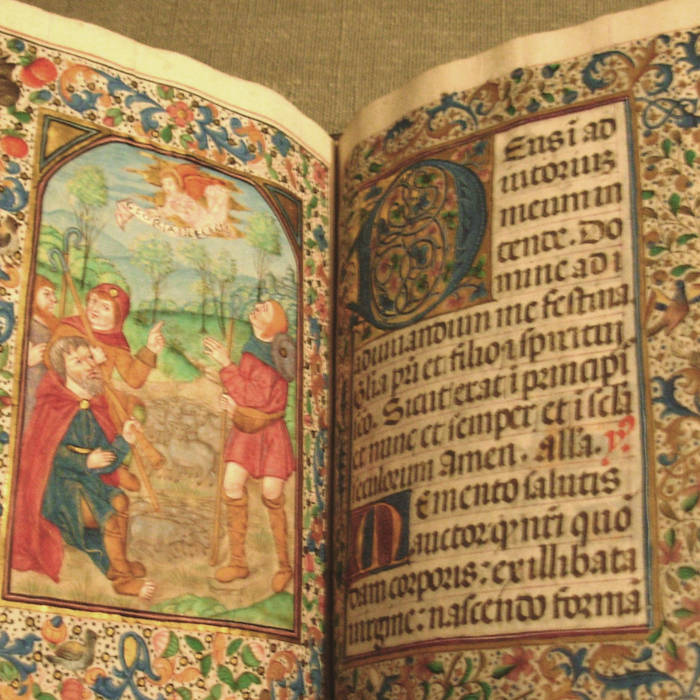 GLORIA IN EXCELSIS
Deus i ad
iutorium
meum in
tende. Do
mine ad i
adiuuandum me festina.
Glia pri et filio ⁊ spiritui
sco. Sicut erat i principi
et nunc et semper et i scla
seculorum Amen. Alla. ps
Memento salutis
auctor q nri quo
dam corporis: ex illibata
uirgine: nascendo forma